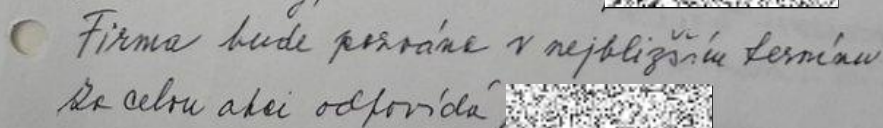 Firma bude pozvána v nejbližším termínu
Za celou akci odpovídá